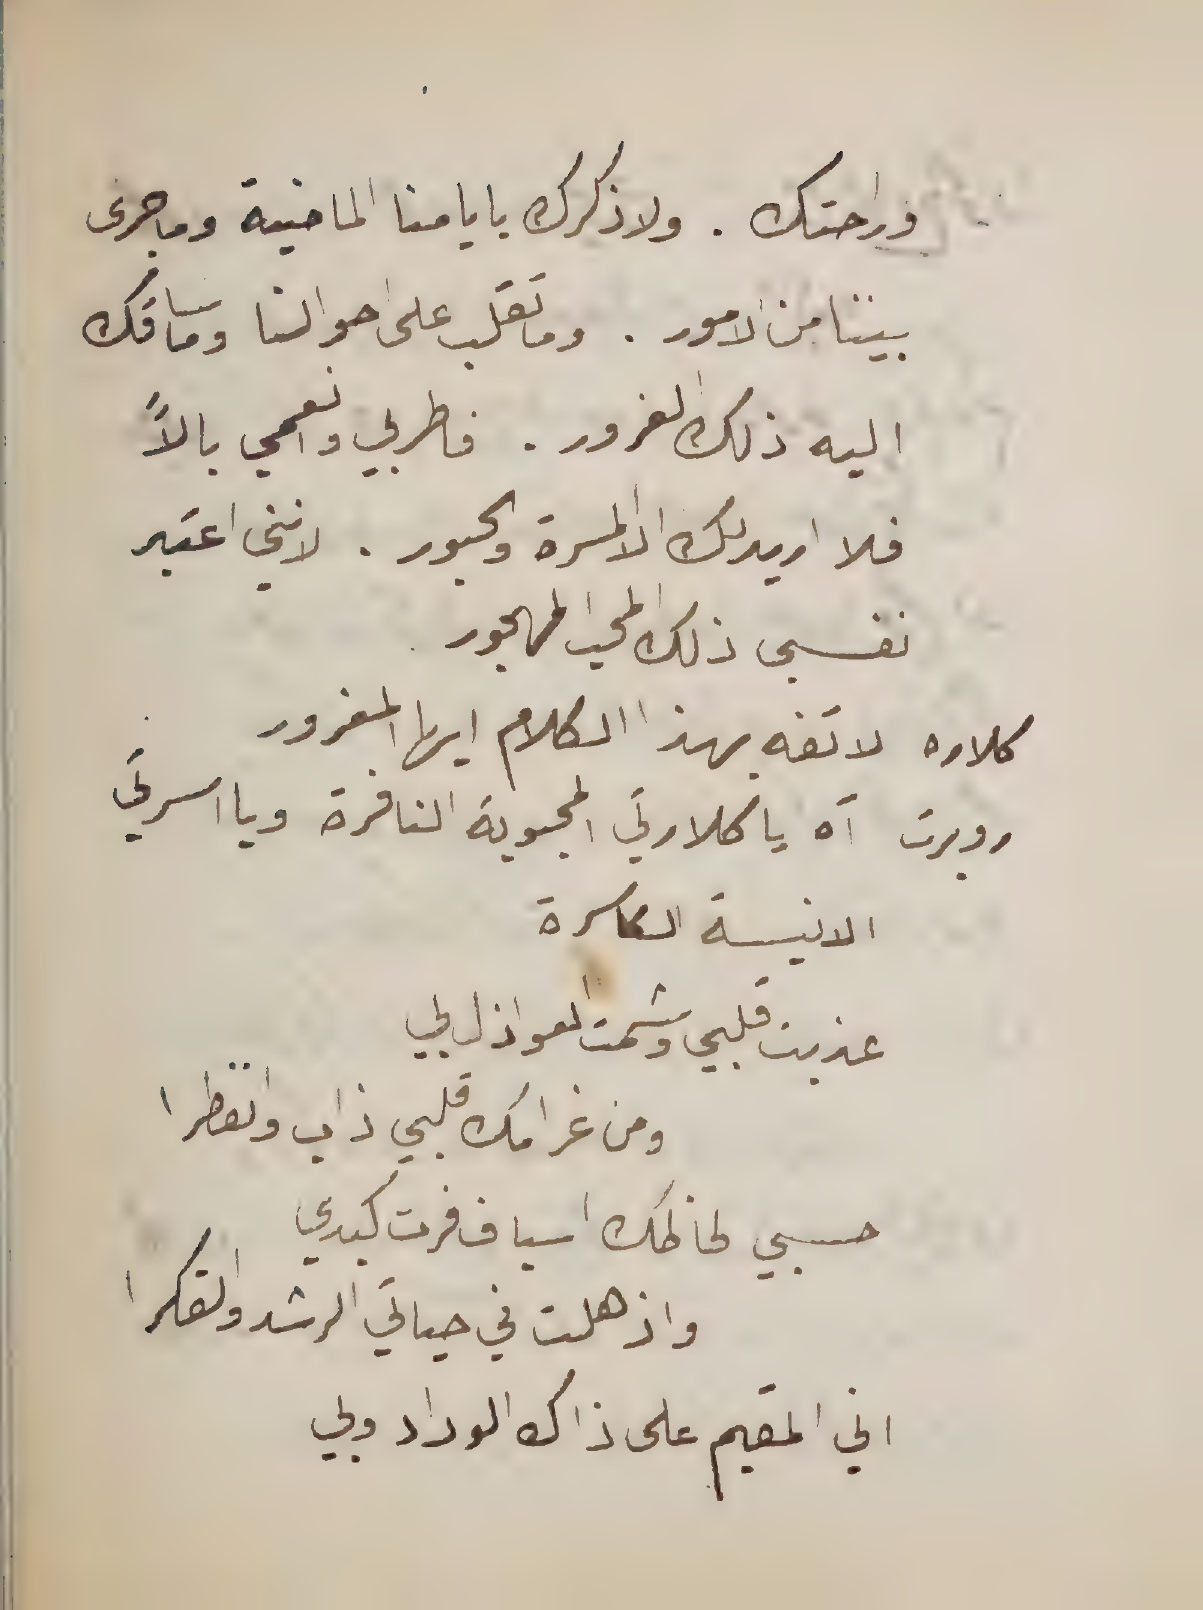 وراحتك . ولاذكرك بايامنا الماضية وماجرى
بيننا من الامور . وماتقلب على احوالنا وماساقك
اليه ذلك الغرور . فاطربي وانعمي بالاً
فلا اريد لك الا المسرة والحبور . لانني اعتبر
نفسي ذلك المحب المهجور
كلاره لا تفه بهذا الكلام ايها المغرور
روبرت آه يا كلارتي المحبوبة النافرة ويا اسرتي
الانيسة الكاسرة
عذبت قلبي وشمت العواذل بي
ومن غرامك قلبي ذاب وانفطرا
حسبي لحاظك اسياف فرت كبدي
واذهلت في حياتي الرشد والفكرا
اني المقيم على ذاك الوداد ولي